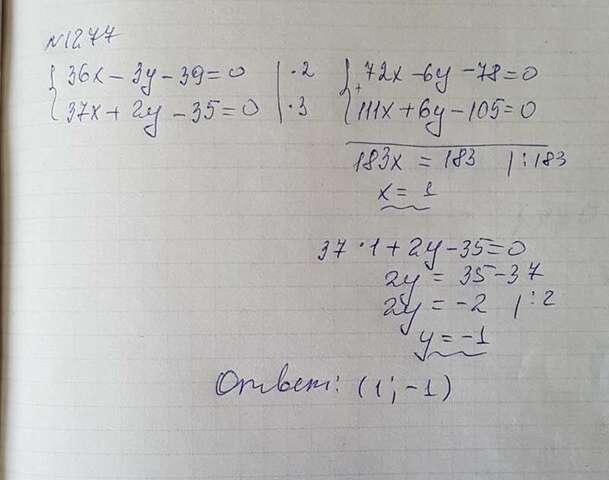 №1277
{ 36x - 3y - 39 = 0 | ·2
{ 37x + 2y - 35 = 0 | ·3
{ 72x - 6y - 78 = 0
+
111x + 6y - 105 = 0
183x = 183 | : 183
x = 1
37 · 1 + 2y - 35 = 0
2y = 35 - 37
2y = -2 | : 2
y = -1
Ответ: (1; -1)